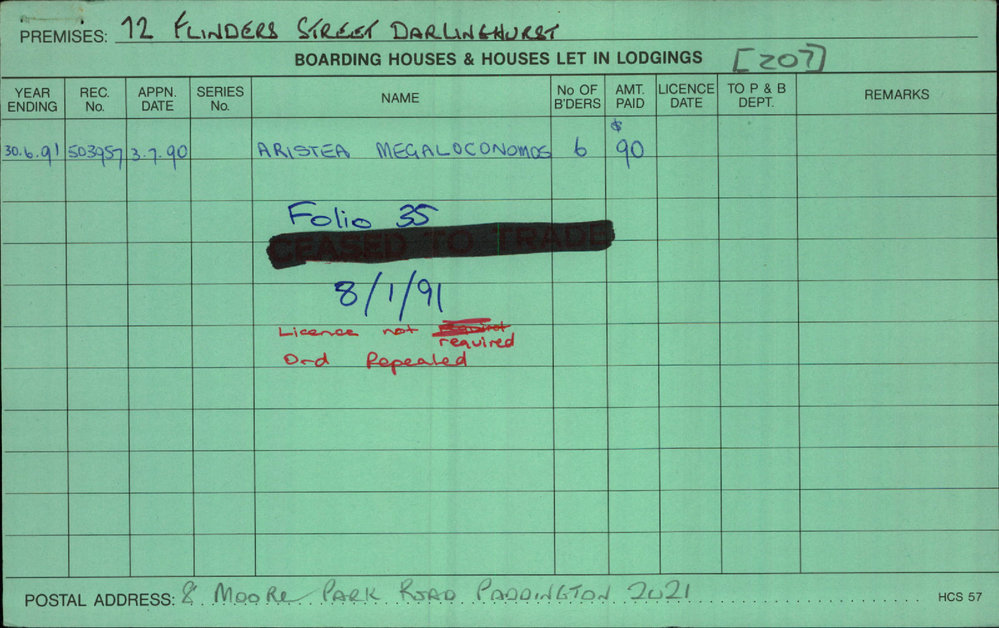 PREMISES: 72 FLINDERS STREET DARLINGHURST
BOARDING HOUSES & HOUSES LET IN LODGINGS [207]
YEAR ENDING REC. No. APPN. DATE SERIES No. NAME No OF B'DERS AMT. PAID LICENCE DATE TO P & B DEPT. REMARKS
30.6.91 503957 3.7.90 ARISTEA MEGALOCONOMOS 6 $ 90
Folio 35
CEASED TO TRADE
8/1/91
Licence not
required
Ord Repealed
POSTAL ADDRESS: 8 MOORE PARK ROAD PADDINGTON 2021 HCS 57